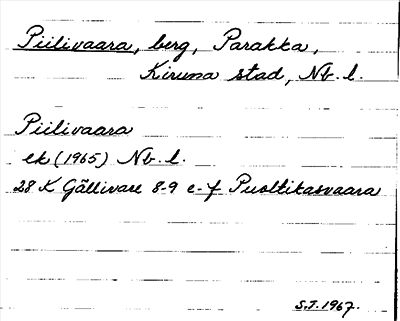 Piilivaara, berg, Parakka,
Kiruna stad, Nb. l.
Piilivaara
ek (1965) Nb. l.
28 K Gällivare 8-9 e-f Puoltikasvaara
S.J. 1967.